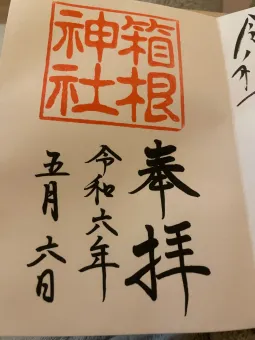 箱根
神社
奉拝
令和六年
五月六日